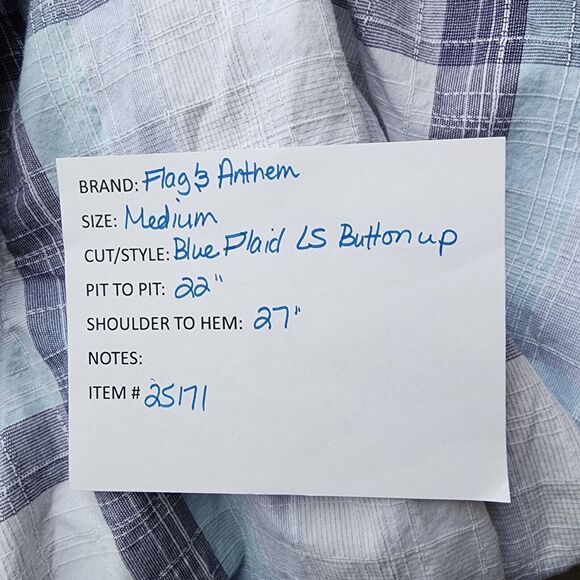 BRAND: Flag & Anthem
SIZE: Medium
CUT/STYLE: Blue Plaid LS Button up
PIT TO PIT: 22"
SHOULDER TO HEM: 27"
NOTES:
ITEM # 25171